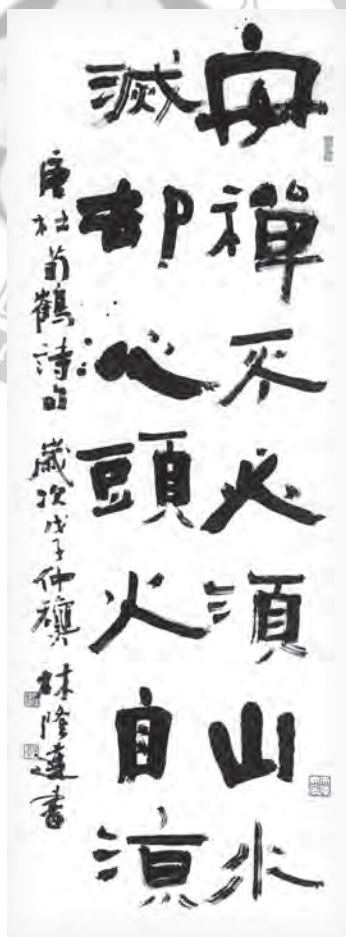 安禪不必須山水
滅卻心頭火自涼
唐杜荀鶴詩句 歲次戊子仲龝 林隆達書